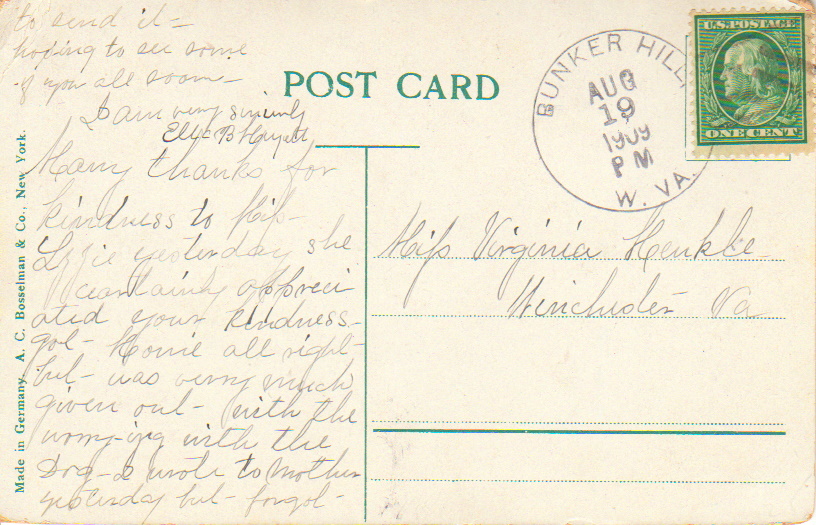 to send it =
hoping to see some
of you all soon -
I am very sincerely
POST CARD
Many thanks for
kindness to Miss
Lizzie yesterday she
certainly appreci
ated your kindness -
got - home all right -
but - was very much
given out - with the
worrying with the
Dog - I wrote to Mother
yesterday but - forgot -
Made in Germany. A. C. Bosselman & Co., New York.
BUNKER HILL,
AUG
19
1909
PM
W. VA.
U.S. POSTAGE
ONE CENT
Miss Virginia Henkle
Winchester Va